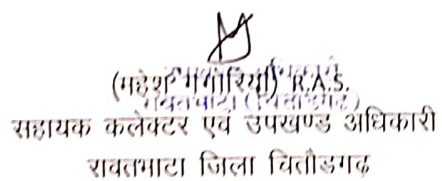 (महेश गागोरिया) R.A.S.
सहायक कलेक्टर एवं उपखण्ड अधिकारी
रावतभाटा जिला चित्तौडगढ़